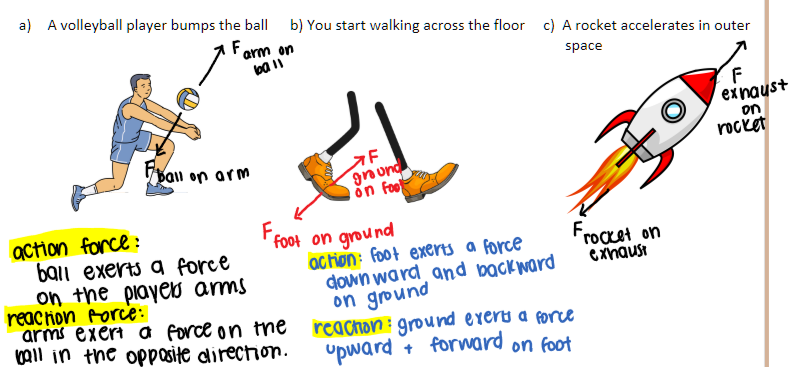 a) A volleyball player bumps the ball
F arm on
ball
F ball on arm
action force:
ball exerts a force
on the players arms
reaction force:
arms exert a force on the
ball in the opposite direction.
b) You start walking across the floor
F
ground
on foot
F foot on ground
action: foot exerts a force
downward and backward
on ground
reaction: ground exerts a force
upward + forward on foot
c) A rocket accelerates in outer
space
F
exhaust
on
rocket
F rocket on
exhaust